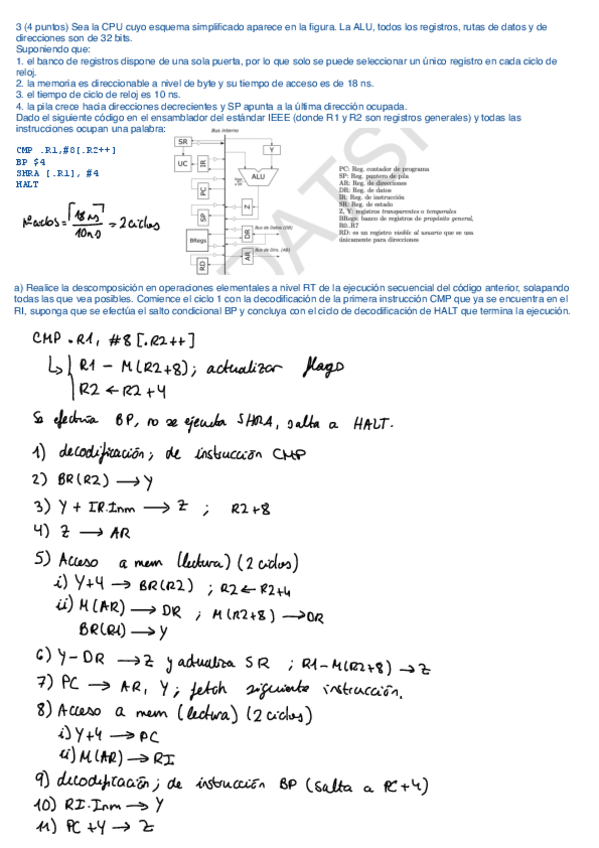 3 (4 puntos) Sea la CPU cuyo esquema simplificado aparece en la figura. La ALU, todos los registros, rutas de datos y de
direcciones son de 32 bits.
Suponiendo que:
1. el banco de registros dispone de una sola puerta, por lo que solo se puede seleccionar un único registro en cada ciclo de
reloj.
2. la memoria es direccionable a nivel de byte y su tiempo de acceso es de 18 ns.
3. el tiempo de ciclo de reloj es 10 ns.
4. la pila crece hacia direcciones decrecientes y SP apunta a la última dirección ocupada.
Dado el siguiente código en el ensamblador del estándar IEEE (donde R1 y R2 son registros generales) y todas las
instrucciones ocupan una palabra:
CMP .R1,#8[.R2++]
BP $4
SHRA [.R1], #4
HALT
Bus interno
SR
Y
UC
IR
ALU
PC
SP
Z
BRegs
DR
Bus de Datos (DB)
AR
Bus de Dirs. (AB)
RD
PC: Reg. contador de programa
SP: Reg. puntero de pila
AR: Reg. de direcciones
DR: Reg. de datos
IR: Reg. de instrucción
SR: Reg. de estado
Z, Y: registros transparentes o temporales
BRegs: banco de registros de propósito general,
R0..R7
RD: es un registro visible al usuario que se usa
únicamente para direcciones
DATSI
Nº ciclos = ⌈18 ns / 10 ns⌉ = 2 ciclos
a) Realice la descomposición en operaciones elementales a nivel RT de la ejecución secuencial del código anterior, solapando
todas las que vea posibles. Comience el ciclo 1 con la decodificación de la primera instrucción CMP que ya se encuentra en el
RI, suponga que se efectúa el salto condicional BP y concluya con el ciclo de decodificación de HALT que termina la ejecución.
CMP .R1, #8 [.R2++]
↳ R1 - M(R2+8); actualizar flags
R2 ← R2+4
Se efectúa BP, no se ejecuta SHRA, salta a HALT.
1) decodificación; de instrucción CMP
2) BR(R2) → Y
3) Y + IR.Inm → Z ; R2+8
4) Z → AR
5) Acceso a mem (lectura) (2 ciclos)
i) Y+4 → BR(R2) ; R2 ← R2+4
ii) M(AR) → DR ; M(R2+8) → DR
BR(R1) → Y
6) Y - DR → Z y actualiza SR ; R1-M(R2+8) → Z
7) PC → AR, Y ; fetch siguiente instrucción.
8) Acceso a mem (lectura) (2 ciclos)
i) Y+4 → PC
ii) M(AR) → RI
9) decodificación; de instrucción BP (salta a PC+4)
10) RI.Inm → Y
11) PC + Y → Z